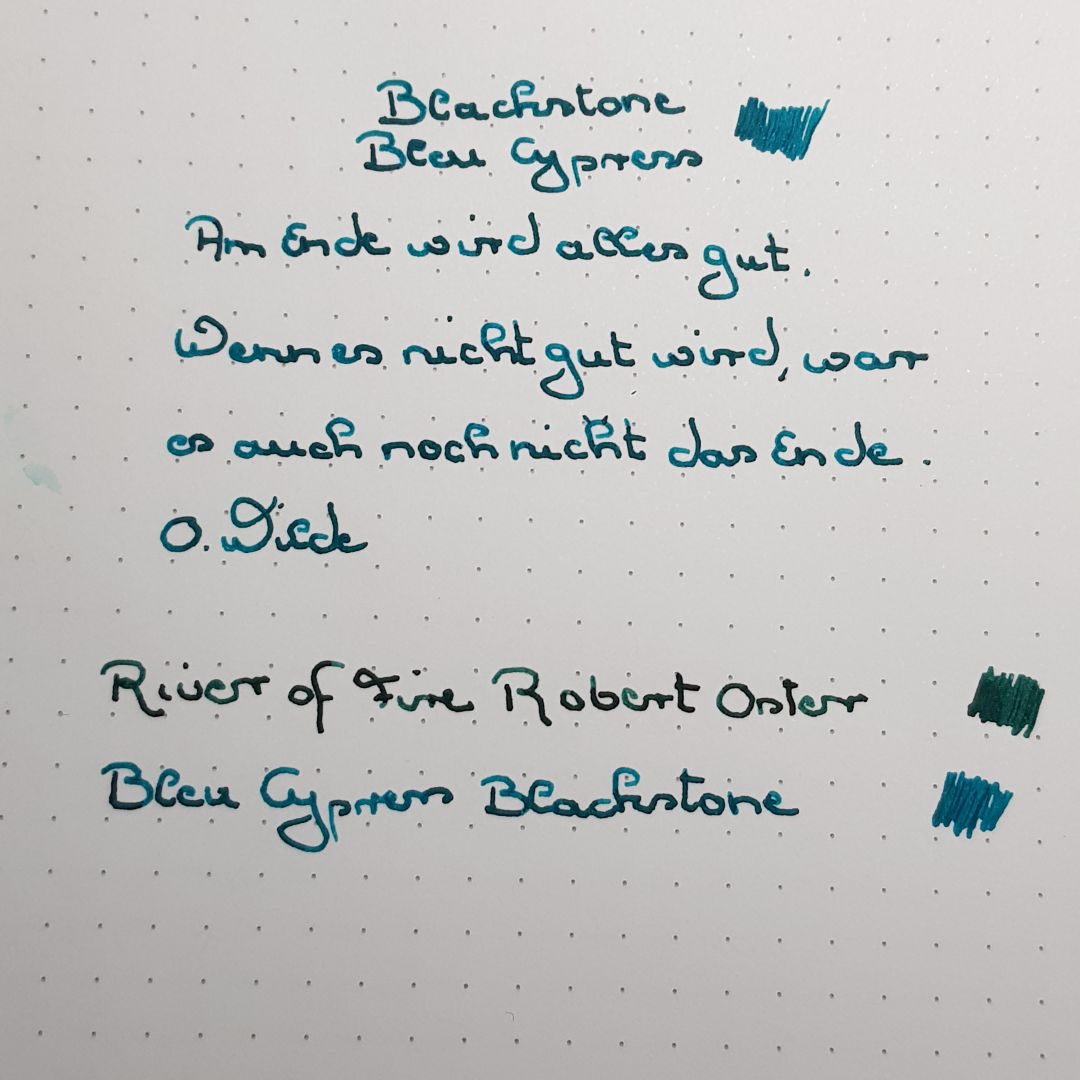 Blackstone
Bleu Cypress
Am Ende wird alles gut.
Wenn es nicht gut wird, war
es auch noch nicht das Ende.
O. Wilde
River of Fire Robert Oster
Bleu Cypress Blackstone